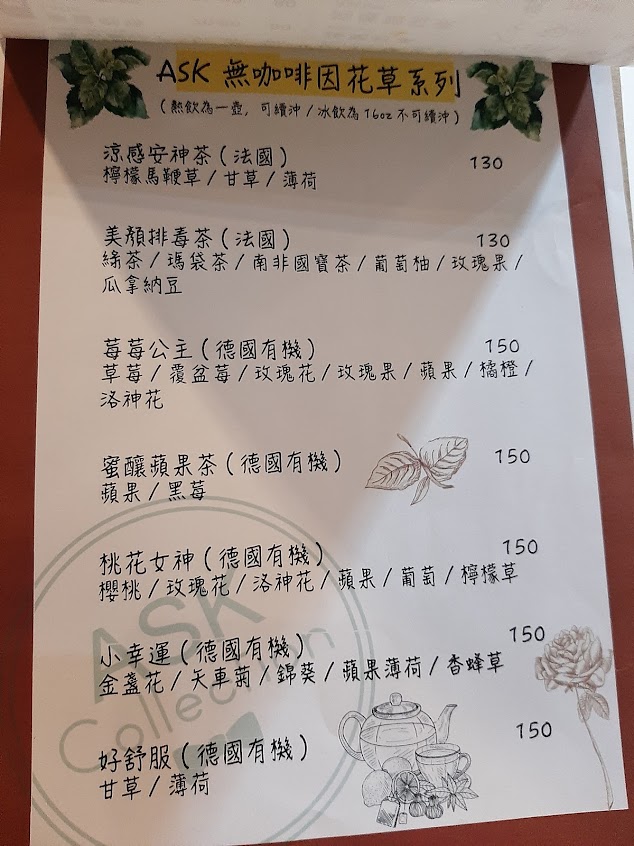 ASK 無咖啡因花草系列
(熱飲為一壺，可續沖/冰飲為16oz不可續沖)
涼感安神茶(法國) 130
檸檬馬鞭草/甘草/薄荷
美顏排毒茶(法國) 130
綠茶/瑪袋茶/南非國寶茶/葡萄柚/玫瑰果/
瓜拿納豆
莓莓公主(德國有機) 150
草莓/覆盆莓/玫瑰花/玫瑰果/蘋果/橘橙/
洛神花
蜜釀蘋果茶(德國有機) 150
蘋果/黑莓
桃花女神(德國有機) 150
櫻桃/玫瑰花/洛神花/蘋果/葡萄/檸檬草
小幸運(德國有機) 150
金盞花/矢車菊/錦葵/蘋果薄荷/香蜂草
好舒服(德國有機) 150
甘草/薄荷
ASK
Collection